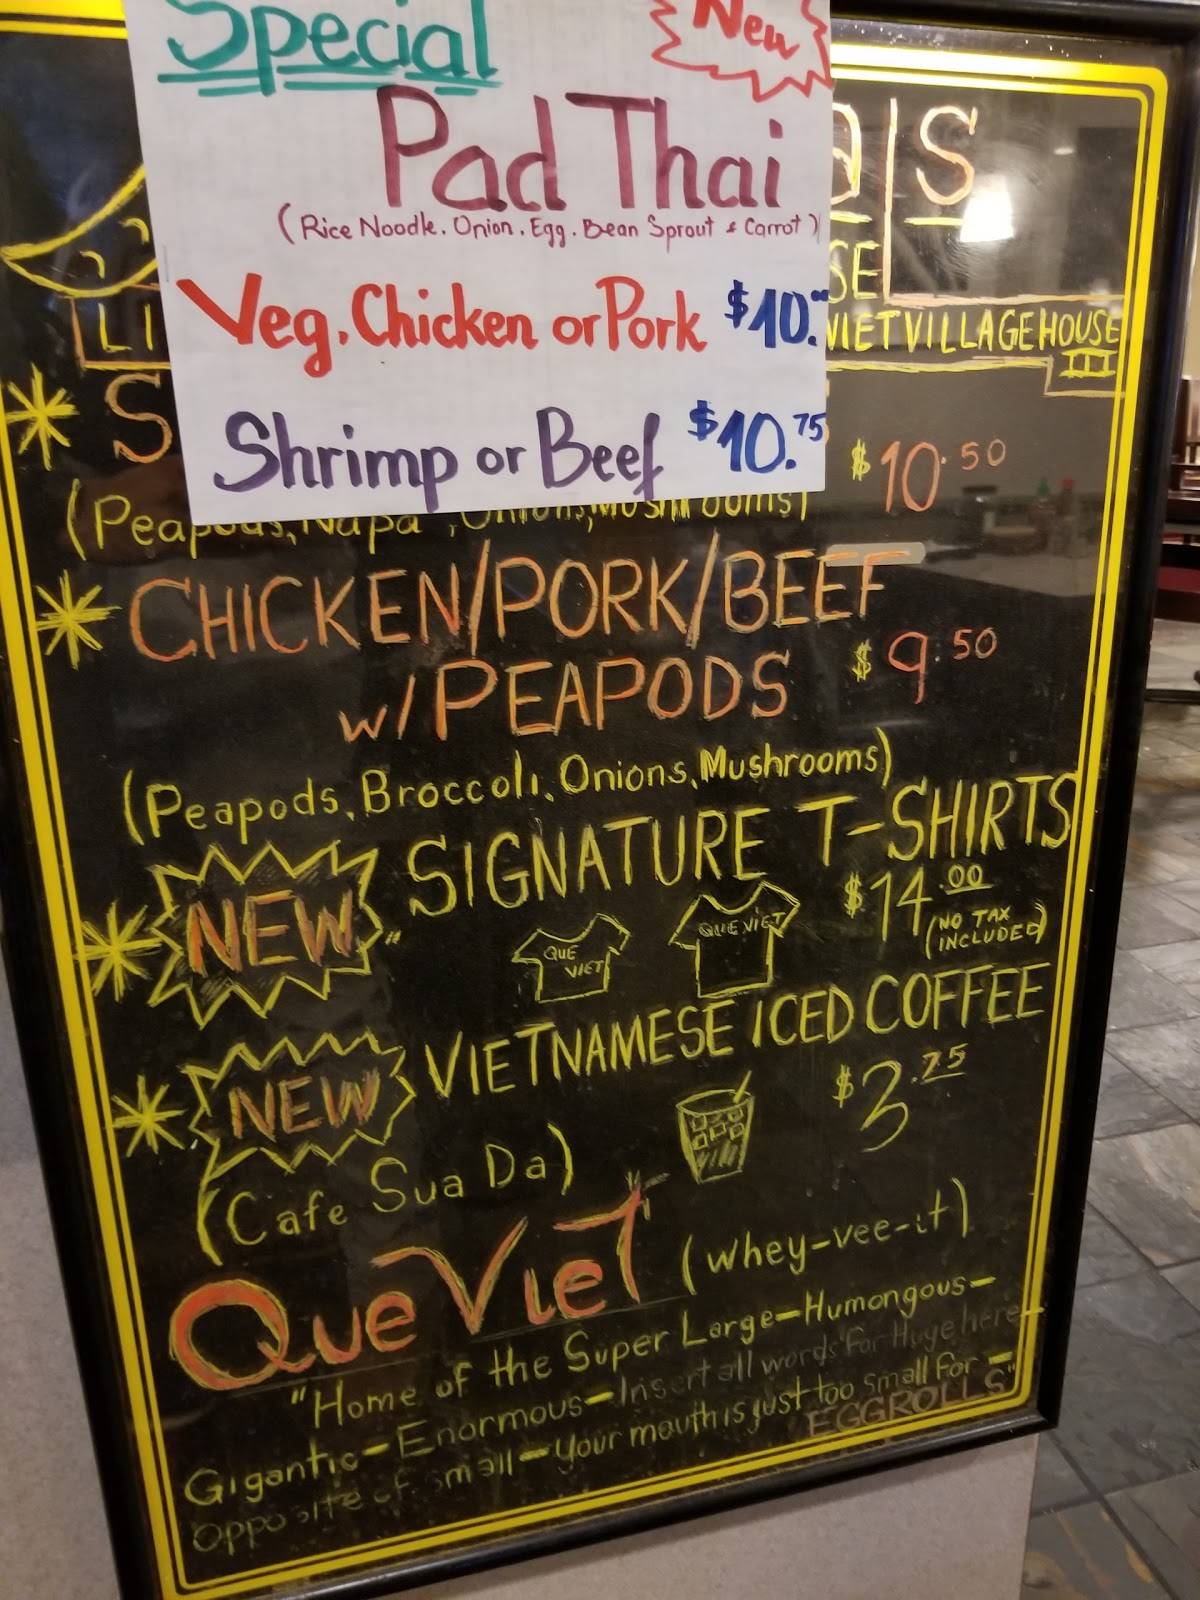 Special
New
Pad Thai
(Rice Noodle. Onion. Egg. Bean Sprout & Carrot)
Veg. Chicken or Pork $10.00
Shrimp or Beef $10.75
VIET VILLAGE HOUSE
III
$10.50
(Peapods, Napa, Onions, Mushrooms)
CHICKEN/PORK/BEEF
w/PEAPODS
$9.50
(Peapods, Broccoli, Onions, Mushrooms)
NEW SIGNATURE T-SHIRTS
QUE VIET
QUE VIET
$14.00
(NO TAX INCLUDED)
NEW VIETNAMESE ICED COFFEE
$3.75
(Cafe Sua Da)
Que Viet (whey-vee-it)
"Home of the Super Large-Humongous-
Gigantic-Enormous-Insert all words for Huge here-
Opposite of small-your mouth is just too small for-
EGGROLLS"